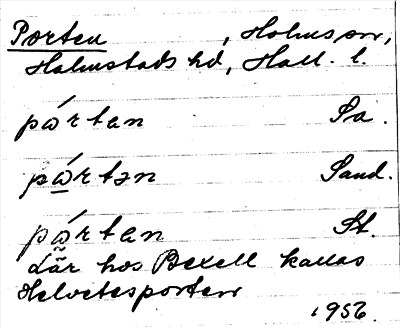 Porten , Holms sn,
Halmstads hd, Hall. l.
pårtan Sa.
pårtən Sand.
pårtan St.
Lär hos Bexell kallas
Helvetesporten
1956.